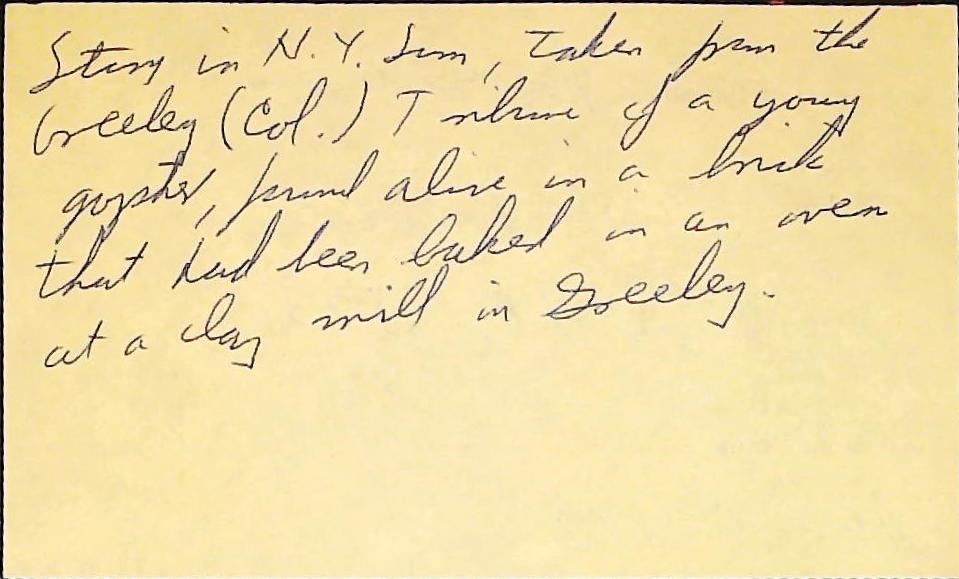 Story in N.Y. Sun, taken from the
Greeley (Col.) Tribune of a young
gopher, found alive in a brick
that had been baked in an oven
at a clay mill in Greeley.